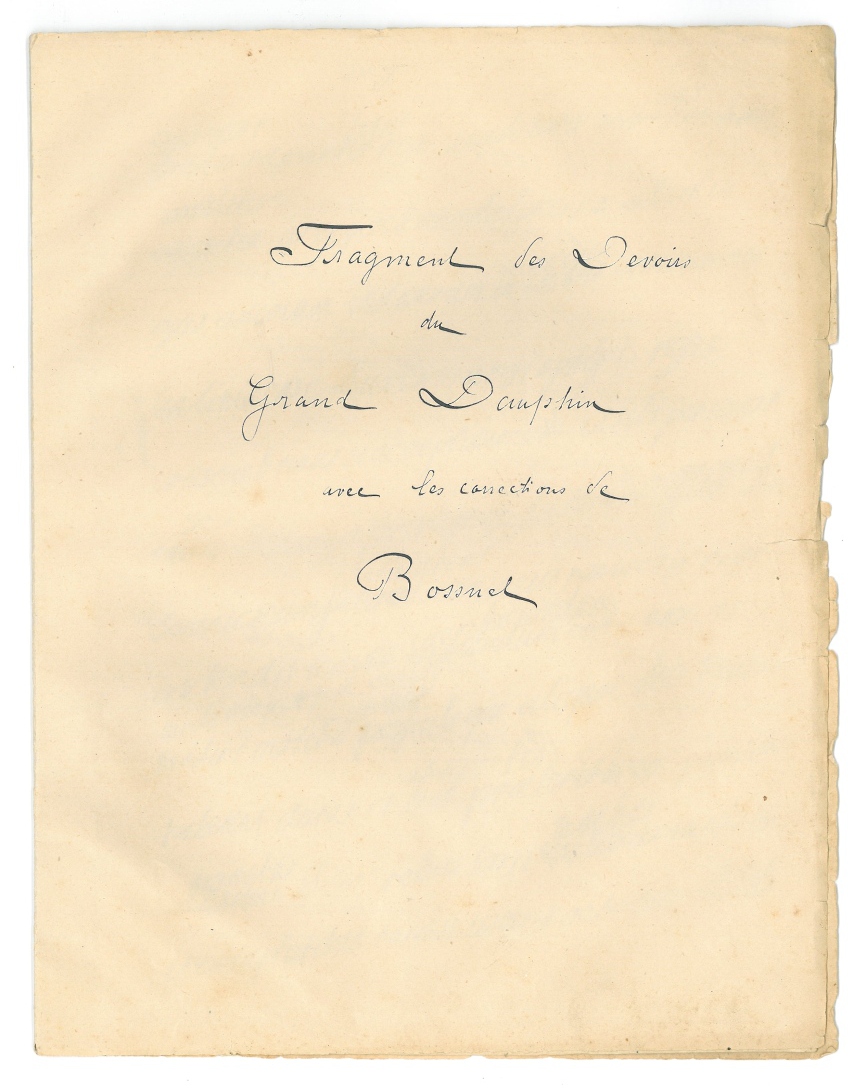 Fragment des Devoirs
du
Grand Dauphin
avec les corrections de
Bossuet